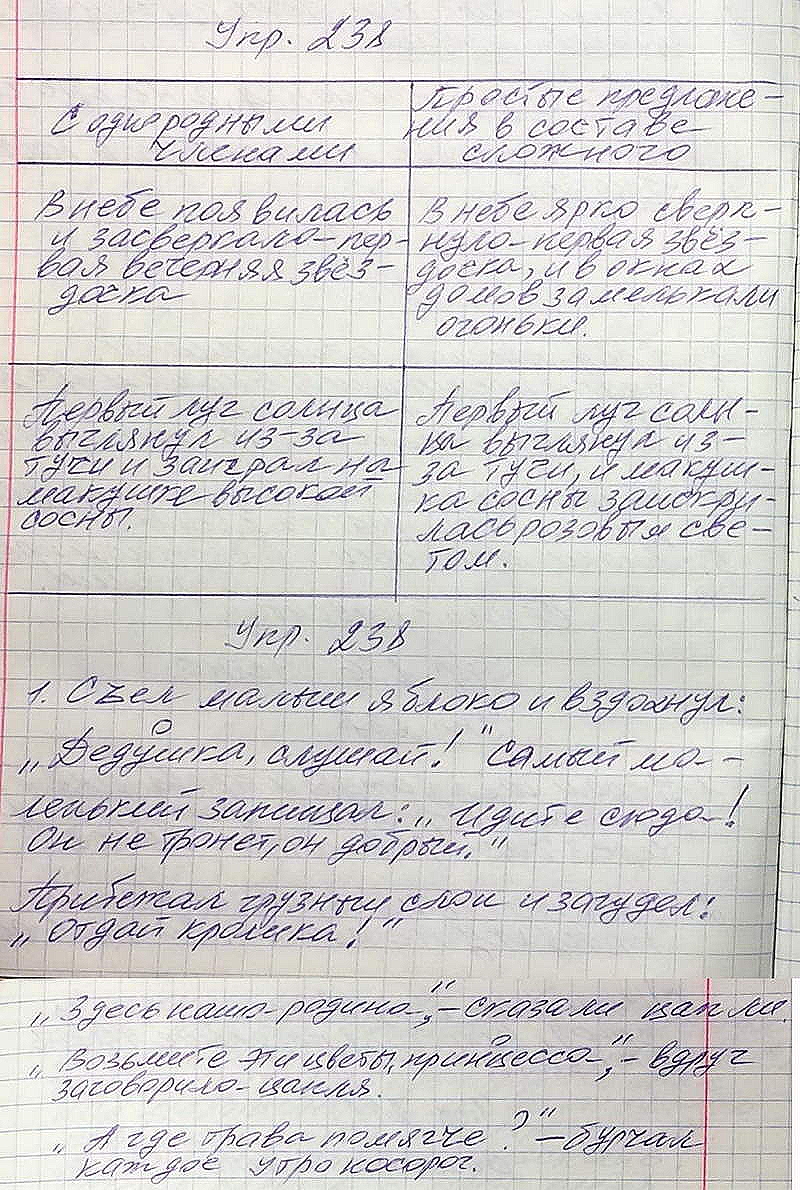 Упр. 238
С однородными
членами
Простые предложе-
ния в составе
сложного
В небе появилась
и засверкала пер-
вая вечерняя звёз-
дочка
В небе ярко сверк-
нула первая звёз-
дочка, и в окнах
домов замелькали
огоньки.
Первый луч солнца
выглянул из-за
тучи и заиграл на
макушке высокой
сосны.
Первый луч солн-
ца выглянул из-
за тучи, и макуш-
ка сосны заискри-
лась розовым све-
том.
Упр. 238
1. Съел малыш яблоко и вздохнул:
„Дедушка, слушай!" Самый ма-
ленький запищал: „Идите сюда!
Он не тронет, он добрый."
Прибежал грузный слон и загудел:
„Отдай кролика!"
„Здесь наша родина", – сказали цапли.
„Возьмите эти цветы, принцесса", – вдруг
заговорила цапля.
„А где трава помягче?" – бурчал
каждое утро носорог.